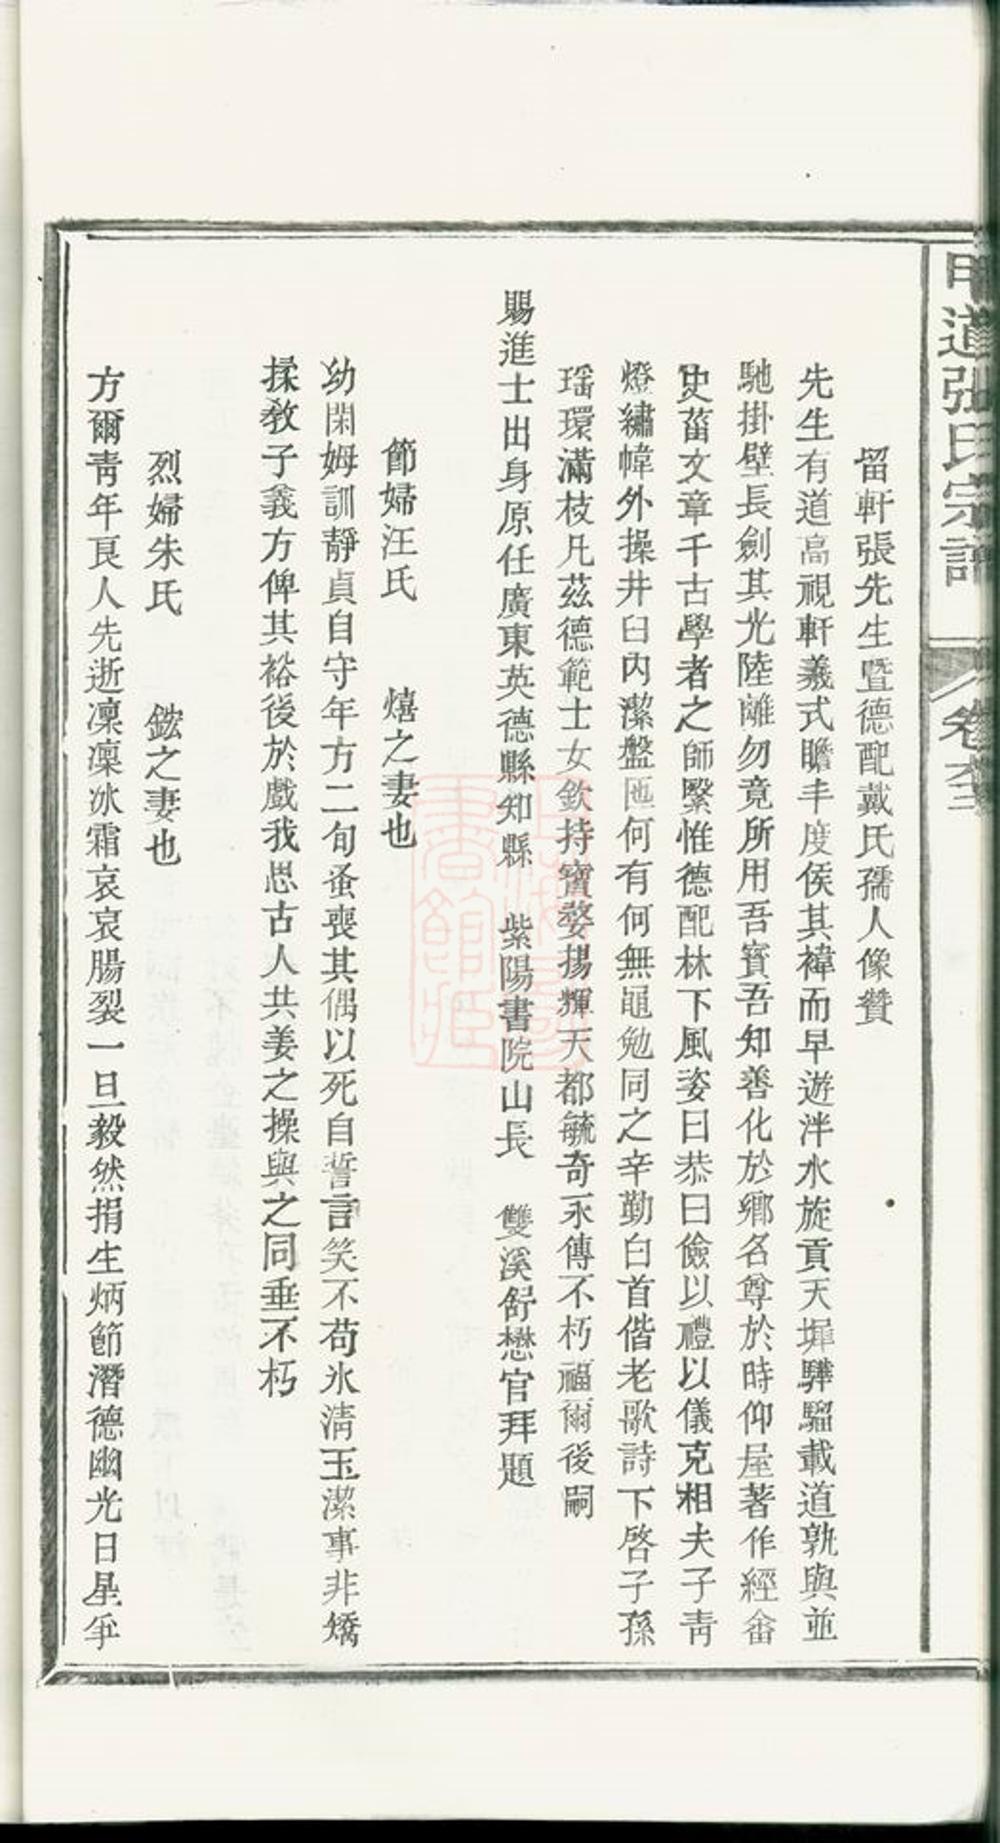 甲道張氏宗譜 卷六三
留軒張先生暨德配戴氏孺人像贊
先生有道高視軒羲式瞻丰度侯其褘而早遊泮水旋貢天墀驊騮載道孰與並
馳掛壁長劍其光陸離勿竟所用吾寳吾知善化於鄉名尊於時仰屋著作經畬
史菑文章千古學者之師繄惟德配林下風姿曰恭曰儉以禮以儀克相夫子靑
燈繡幃外操井臼內潔盤匜何有何無黽勉同之辛勤白首偕老歌詩下啓子孫
瑶環滿枝凡茲德範士女欽持寶婺揚輝天都毓奇永傳不朽福爾後嗣
賜進士出身原任廣東英德縣知縣 紫陽書院山長 雙溪舒懋官拜題
節婦汪氏 熺之妻也
幼閑姆訓靜貞自守年方二旬蚤喪其偶以死自誓言笑不苟氷淸玉潔事非矯
揉敎子義方俾其裕後於戲我思古人共姜之操與之同垂不朽
烈婦朱氏 鋐之妻也
方爾靑年良人先逝凜凜冰霜哀哀腸裂一旦毅然捐生炳節潛德幽光日星爭